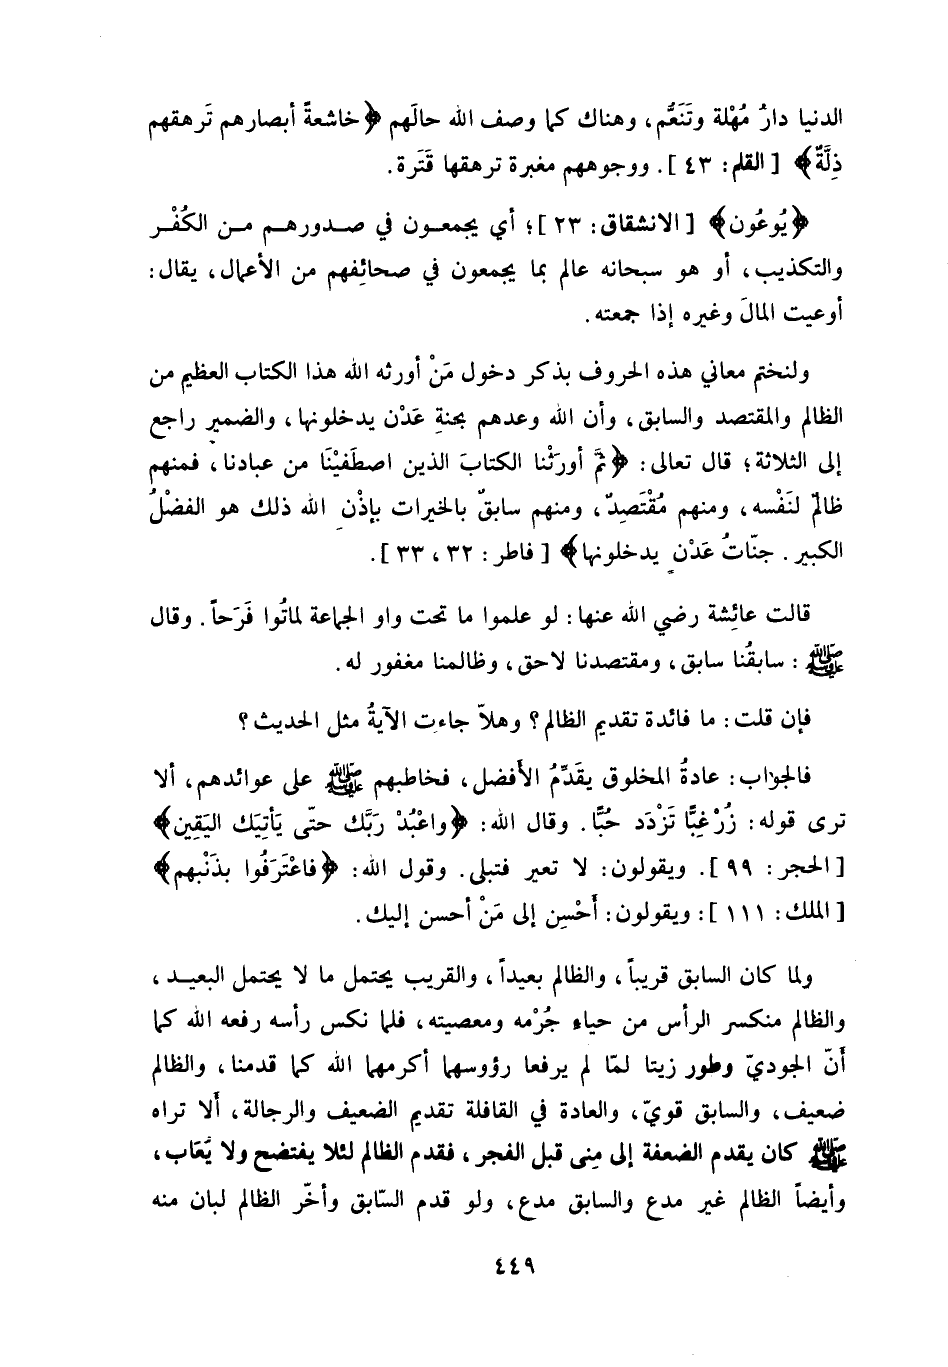 الدنيا دارُ مُهْلة وتَنَعُّم، وهناك كما وصف الله حالَهم ﴿خاشعةً أبصارهم تَرهقهم
ذِلَّةٌ﴾ [القلم: ٤٣]. ووجوههم مغبرة ترهقها قَتَرة.
﴿يُوعُون﴾ [الانشقاق: ٢٣]؛ أي يجمعون في صدورهم من الكُفْر
والتكذيب، أو هو سبحانه عالم بما يجمعون في صحائِفهم من الأعمال، يقال:
أوعيت المالَ وغيره إذا جمعته.
ولنختم معاني هذه الحروف بذكر دخول مَنْ أورثه الله هذا الكتاب العظيم من
الظالم والمقتصد والسابق، وأن الله وعدهم بجنةِ عَدْن يدخلونها، والضمير راجع
إلى الثلاثة؛ قال تعالى: ﴿ثُمَّ أورَثْنا الكتابَ الذين اصطَفيْنَا من عبادنا، فمنهم
ظالمٌ لنَفْسه، ومنهم مُقْتَصِدٌ، ومنهم سابقٌ بالخيرات بإذْنِ الله ذلك هو الفضْلُ
الكبير. جنّاتُ عَدْنٍ يدخلونها﴾ [فاطر: ٣٢، ٣٣].
قالت عائِشة رضي الله عنها: لو علموا ما تحت واو الجماعة لماتُوا فَرَحاً. وقال
ﷺ: سابقُنا سابق، ومقتصدنا لاحق، وظالمنا مغفور له.
فإن قلت: ما فائدة تقديم الظالم؟ وهلاّ جاءت الآيةُ مثل الحديث؟
فالجواب: عادةُ المخلوق يقَدِّمُ الأَفضل، فخاطبهم ﷺ على عوائدهم، ألا
ترى قوله: زُرْ غِبًّا تَزْدَد حُبًّا. وقال الله: ﴿واعْبُدْ رَبَّك حتّى يَأتِيَك اليَقِين﴾
[الحجر: ٩٩]. ويقولون: لا تعير فتبلى. وقول الله: ﴿فاعْتَرَفُوا بذَنْبهم﴾
[الملك: ١١١]: ويقولون: أَحْسِن إلى مَنْ أحسن إليك.
ولما كان السابق قريباً، والظالم بعيداً، والقريب يحتمل ما لا يحتمل البعيد،
والظالم منكسر الرأس من حياءِ جُرْمه ومعصيته، فلما نكس رأسه رفعه الله كما
أَنّ الجوديّ وطور زيتا لمّا لم يرفعا رؤوسهما أكرمهما الله كما قدمنا، والظالم
ضعيف، والسابق قويّ، والعادة في القافلة تقديم الضعيف والرجالة، أَلا تراه
ﷺ كان يقدم الضعفة إلى مِنى قبل الفجر، فقدم الظالم لئلا يفتضح ولا يُعَاب،
وأيضاً الظالم غير مدع والسابق مدع، ولو قدم السّابق وأخّر الظالم لبان منه
٤٤٩